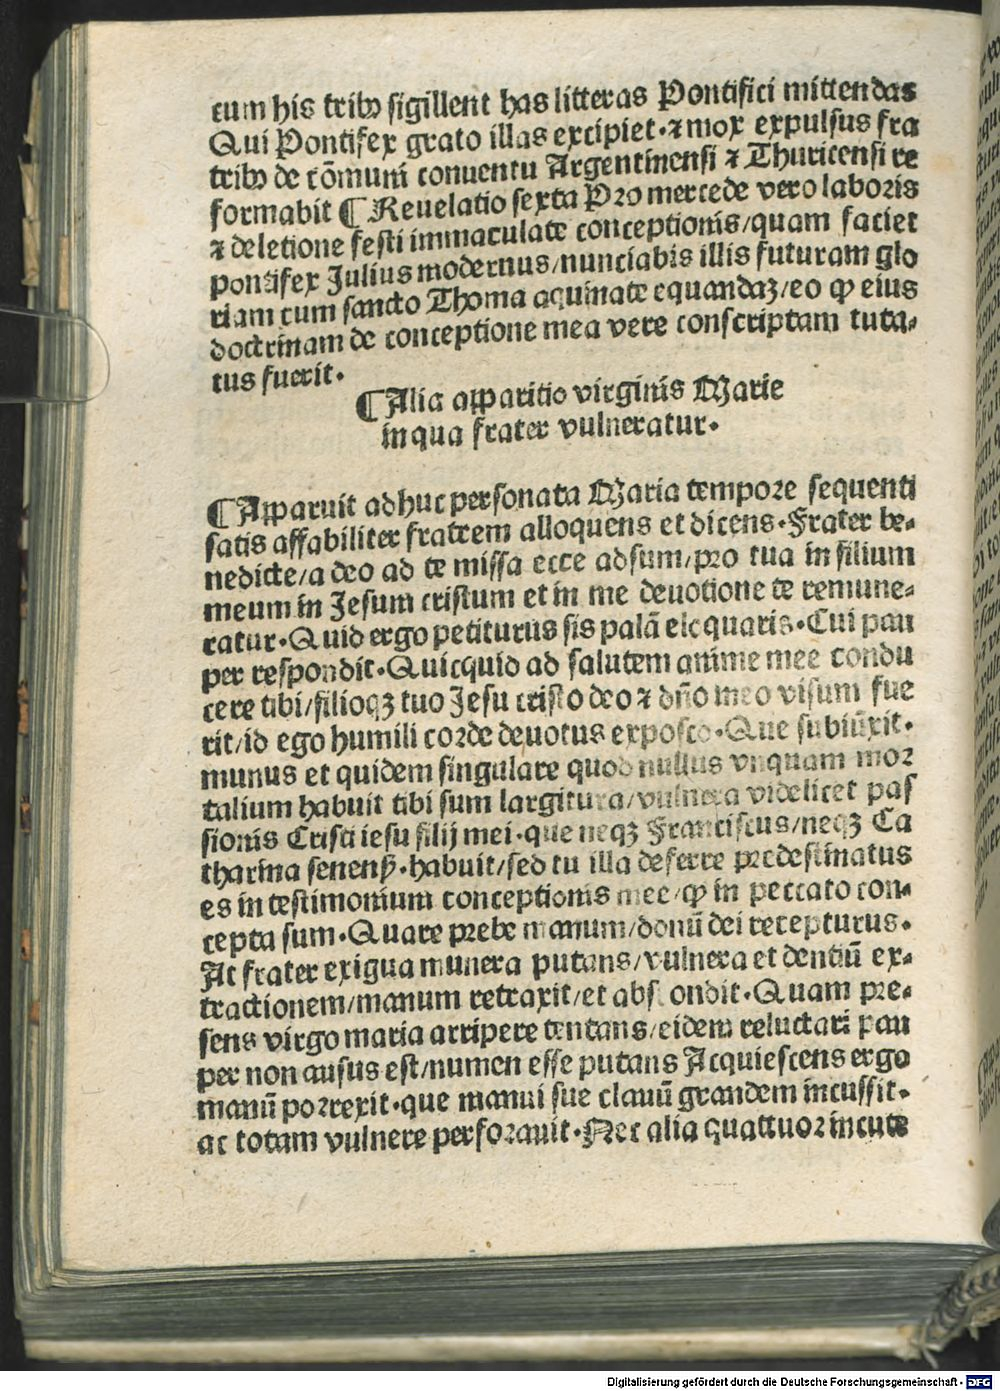 cum his tribꝰ sigillent has litteras Pontifici mittendas
Qui Pontifex grato illas excipiet· ⁊ mox expulsus fra
tribꝰ de cõmuni conuentu Argentinensi ⁊ Thuricensi re
formabit ¶ Reuelatio sexta Pro mercede vero laboris
⁊ deletione festi immaculate conceptionis/quam faciet
pontifex Julius modernus/nunciabis illis futuram glo
riam cum sancto Thoma aquinate equandaꝫ/eo ꝙ eius
doctrinam de conceptione mea vere conscriptam tuta⸗
tus fuerit·
¶ Alia apparitio virginis Marie
in qua frater vulneratur·
¶ Apparuit adhuc personata Maria tempore sequenti
satis affabiliter fratrem alloquens et dicens· Frater be⸗
nedicte/a deo ad te missa ecce adsum/pro tua in filium
meum in Jesum cristum et in me deuotione te remune⸗
ratur· Quid ergo petiturus sis palã eloquaris· Cui pau
per respondit· Quicquid ad salutem anime mee condu
cere tibi/filioqꝫ tuo Jesu cristo deo ⁊ dño meo visum fue
rit/id ego humili corde deuotus exposco· Que subiũxit·
munus et quidem singulare quod nullus vnquam mor
talium habuit tibi sum largitura/vulnera videlicet pas
sionis Cristi iesu filij mei· que neqꝫ Franciscus/neqꝫ Ca
tharina senenß· habuit/sed tu illa deferre predestinatus
es in testimonium conceptionis mee/ꝙ in peccato con⸗
cepta sum· Quare prebe manum/donũ dei recepturus·
At frater exigua munera putans/vulnera et dentiũ ex⸗
tractionem/manum retraxit/et abscondit· Quam pre⸗
sens virgo maria arripere tentans/eidem reluctari pau
per non ausus est/numen esse putans Acquiescens ergo
manũ porrexit· que manui sue clauũ grandem incussit·
ac totam vulnere perforauit· Nec alia quattuor incute
Digitalisierung gefördert durch die Deutsche Forschungsgemeinschaft - DFG